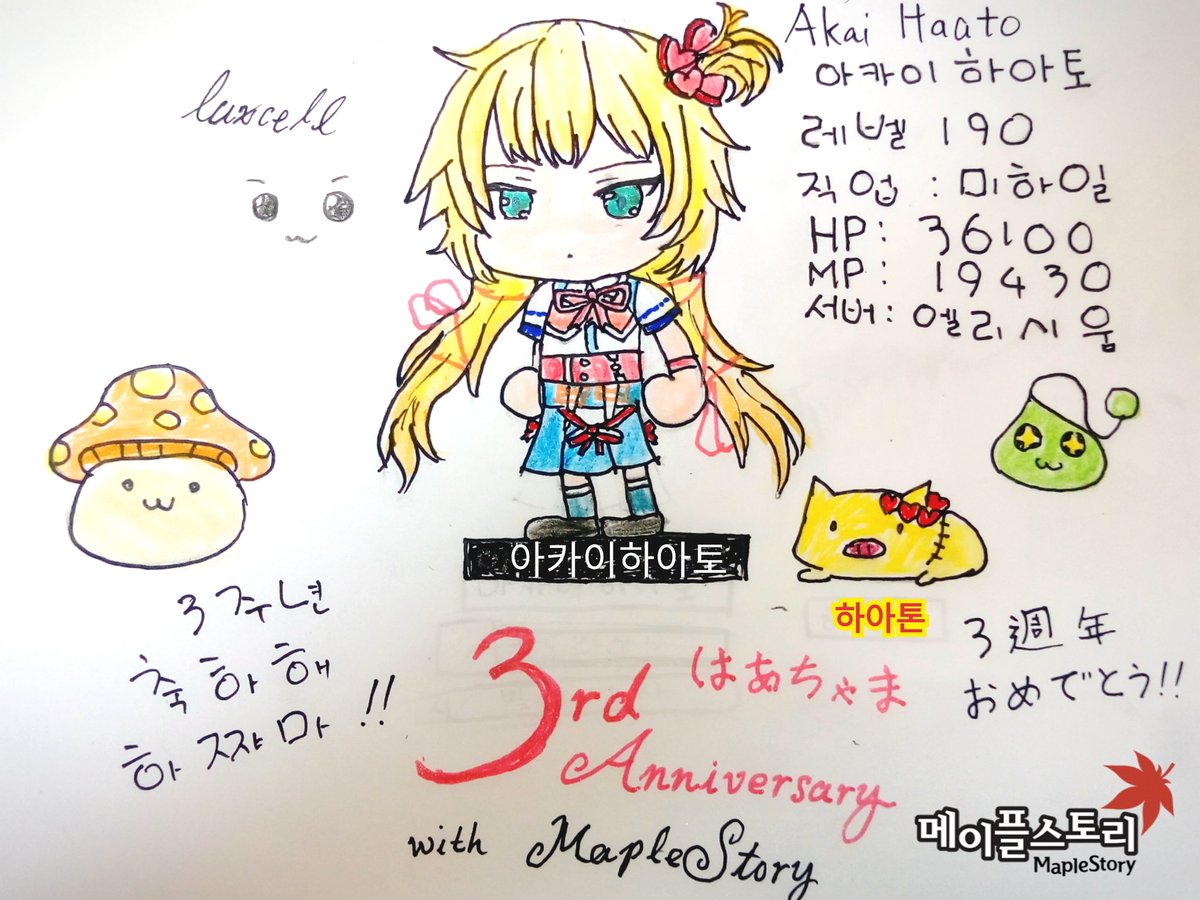 luxcell
Akai Haato
아카이 하아토
레벨 190
직업 : 미하일
HP: 36100
MP: 19430
서버: 엘리시움
아카이하아토
하아톤
3주년
축하해
하쨔마!!
3rd
Anniversary
はあちゃま
3週年
おめでとう!!
with MapleStory
메이플스토리
MapleStory